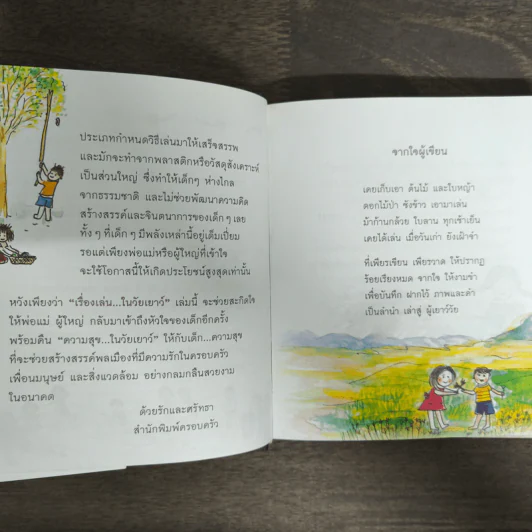 ประเภทกำหนดวิธีเล่นมาให้เสร็จสรรพ
และมักจะทำจากพลาสติกหรือวัสดุสังเคราะห์
เป็นส่วนใหญ่ ซึ่งทำให้เด็กๆ ห่างไกล
จากธรรมชาติ และไม่ช่วยพัฒนาความคิด
สร้างสรรค์และจินตนาการของเด็กๆ เลย
ทั้งๆ ที่เด็กๆ มีพลังเหล่านี้อยู่เต็มเปี่ยม
รอแต่เพียงพ่อแม่หรือผู้ใหญ่ที่เข้าใจ
จะใช้โอกาสนี้ให้เกิดประโยชน์สูงสุดเท่านั้น
หวังเพียงว่า "เรื่องเล่น...ในวัยเยาว์" เล่มนี้ จะช่วยสะกิดใจ
ให้พ่อแม่ ผู้ใหญ่ กลับมาเข้าถึงหัวใจของเด็กอีกครั้ง
พร้อมคืน "ความสุข...ในวัยเยาว์" ให้กับเด็ก...ความสุข
ที่จะช่วยสร้างสรรค์พลเมืองที่มีความรักในครอบครัว
เพื่อนมนุษย์ และสิ่งแวดล้อม อย่างกลมกลืนสวยงาม
ในอนาคต
ด้วยรักและศรัทธา
สำนักพิมพ์ครอบครัว
จากใจผู้เขียน
เคยเก็บเอา ต้นไม้ และใบหญ้า
ดอกไม้ป่า ซังข้าว เอามาเล่น
ม้าก้านกล้วย ใบลาน ทุกเช้าเย็น
เคยได้เล่น เมื่อวันเก่า ยังเฝ้าจำ
ที่เพียรเขียน เพียรวาด ให้ปรากฏ
ร้อยเรียงหมด จากใจ ให้งามขำ
เพื่อบันทึก ฝากไว้ ภาพและคำ
เป็นลำนำ เล่าสู่ ผู้เยาว์วัย